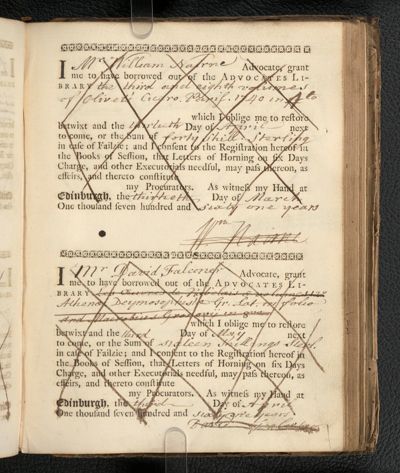 I Mr William Nairne Advocate, grant
me to have borrowed out of the ADVOCATES LI-
BRARY the third and eighth volumes
of Oliveti Cicero. Paris. 1740 in 4to
which I oblige me to restore
betwixt and the thirtieth Day of April next
to come, or the Sum of forty shill: Sterling
in case of Failzie; and I consent to the Registration hereof in
the Books of Session, that Letters of Horning on six Days
Charge, and other Executorials needful, may pass thereon, as
effeirs, and thereto constitute
my Procurators. As witness my Hand at
Edinburgh, the thirtieth Day of March
One thousand seven hundred and sixty one years
Wm Nairne
I Mr David Falconer Advocate, grant
me to have borrowed out of the ADVOCATES LI-
BRARY
Gr. Lat. folio
which I oblige me to restore
betwixt and the third Day of May next
to come, or the Sum of sixteen Shillings Sterl.
in case of Failzie; and I consent to the Registration hereof in
the Books of Session, that Letters of Horning on six Days
Charge, and other Executorials needful, may pass thereon, as
effeirs, and thereto constitute
my Procurators. As witness my Hand at
Edinburgh, the third Day of April
One thousand seven hundred and sixty one years